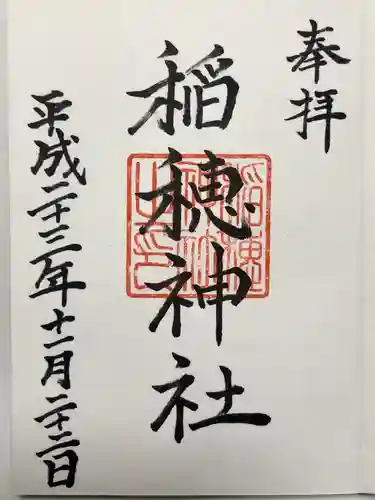 奉拝
稲穂神社
平成二十三年十一月二十三日